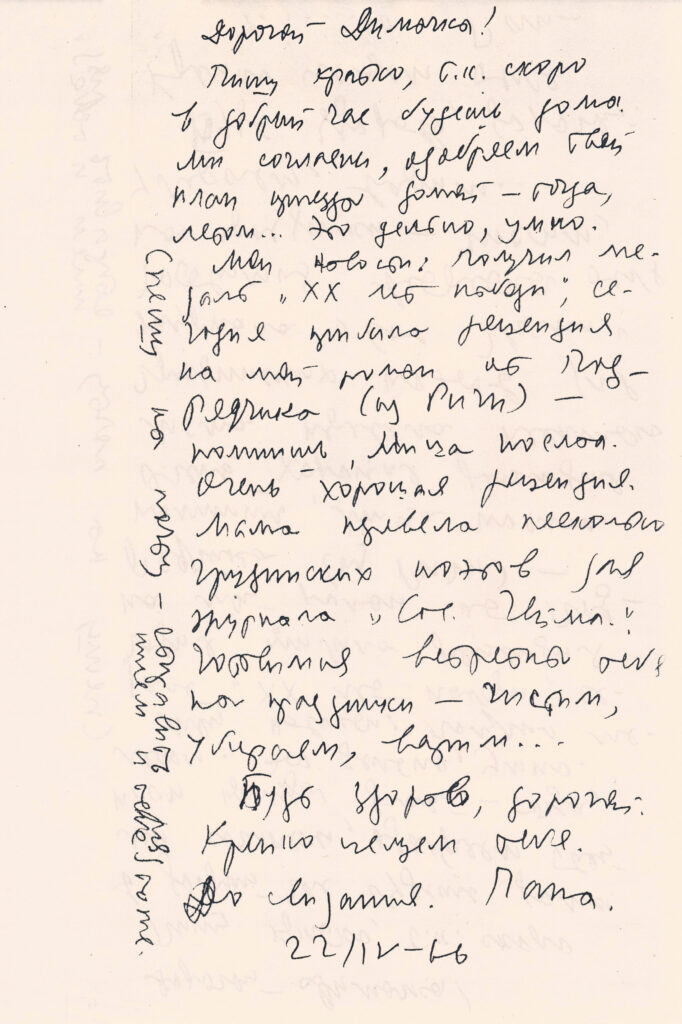 Дорогой Димочка!
Пишу кратко, т.к. скоро
в добрый час будешь дома.
Мы согласны, одобряем твой
план приезда домой – тогда,
летом... Это дельно, умно.
Мои новости: получил ме-
даль „XX лет победы", се-
годня прибыла рецензия
на мой роман от Под-
Редчика (из Риги) –
помнишь, Миша послал.
Очень хорошая рецензия.
Мама перевела несколько
грузинских поэтов для
журнала „Сов. Геймл."
Готовимся встретить тебя
на праздники – чистим,
убираем, варим...
Будь здоров, дорогой.
Крепко целуем тебя.
До свидания. Папа.
22/IV–66
Спешу на почту –